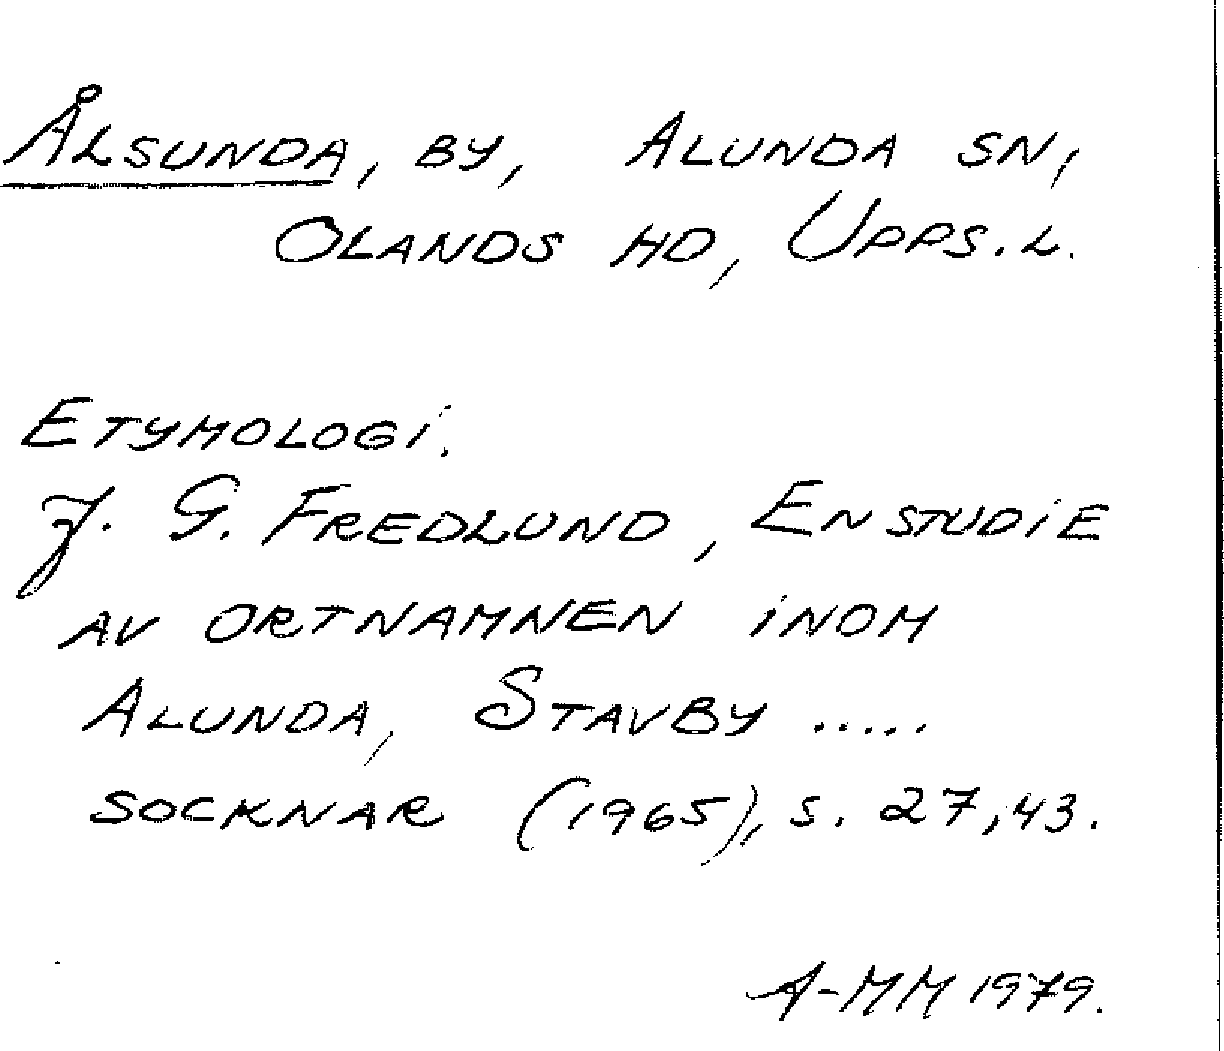 Ålsunda, by, Alunda sn,
Olands hd, Upps. l.
Etymologi.
J. G. Fredlund, En studie
av ortnamnen inom
Alunda, Stavby .....
socknar (1965), s. 27, 43.
A-MM 1979.